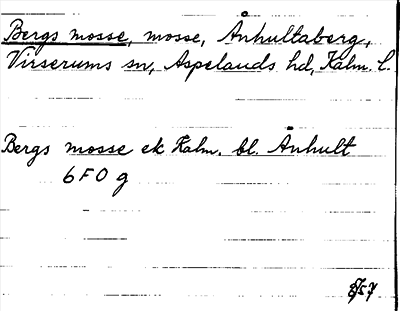 Bergs mosse, mosse, Ånhultaberg,
Virserums sn, Aspelands hd, Kalm. l.
Bergs mosse ek Kalm. bl. Ånhult
6F0g